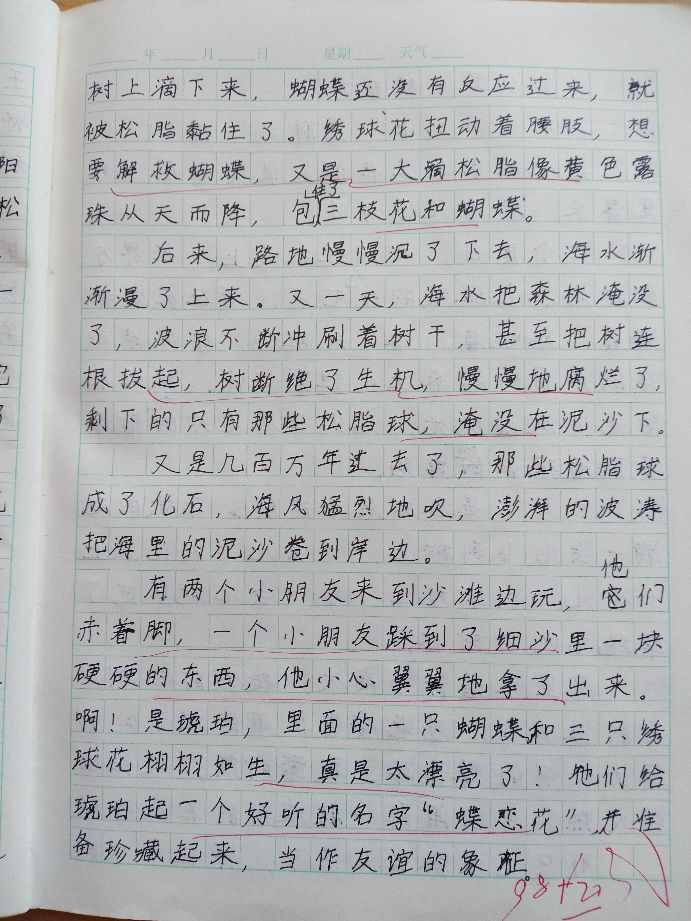 年 月 日 星期 天气
树上滴下来，蝴蝶还没有反应过来，就
被松脂黏住了。绣球花扭动着腰肢，想
要解救蝴蝶，又是一大滴松脂像黄色露
珠从天而降，包住了三枝花和蝴蝶。
后来，路地慢慢沉了下去，海水渐
渐漫了上来。又一天，海水把森林淹没
了，波浪不断冲刷着树干，甚至把树连
根拔起，树断绝了生机，慢慢地腐烂了，
剩下的只有那些松脂球，淹没在泥沙下。
又是几百万年过去了，那些松脂球
成了化石，海风猛烈地吹，澎湃的波涛
把海里的泥沙卷到岸边。
有两个小朋友来到沙滩边玩，他们
赤着脚，一个小朋友踩到了细沙里一块
硬硬的东西，他小心翼翼地拿了出来。
啊！是琥珀，里面的一只蝴蝶和三只绣
球花栩栩如生，真是太漂亮了！他们给
琥珀起一个好听的名字“蝶恋花”，并准
备珍藏起来，当作友谊的象征。
98+2